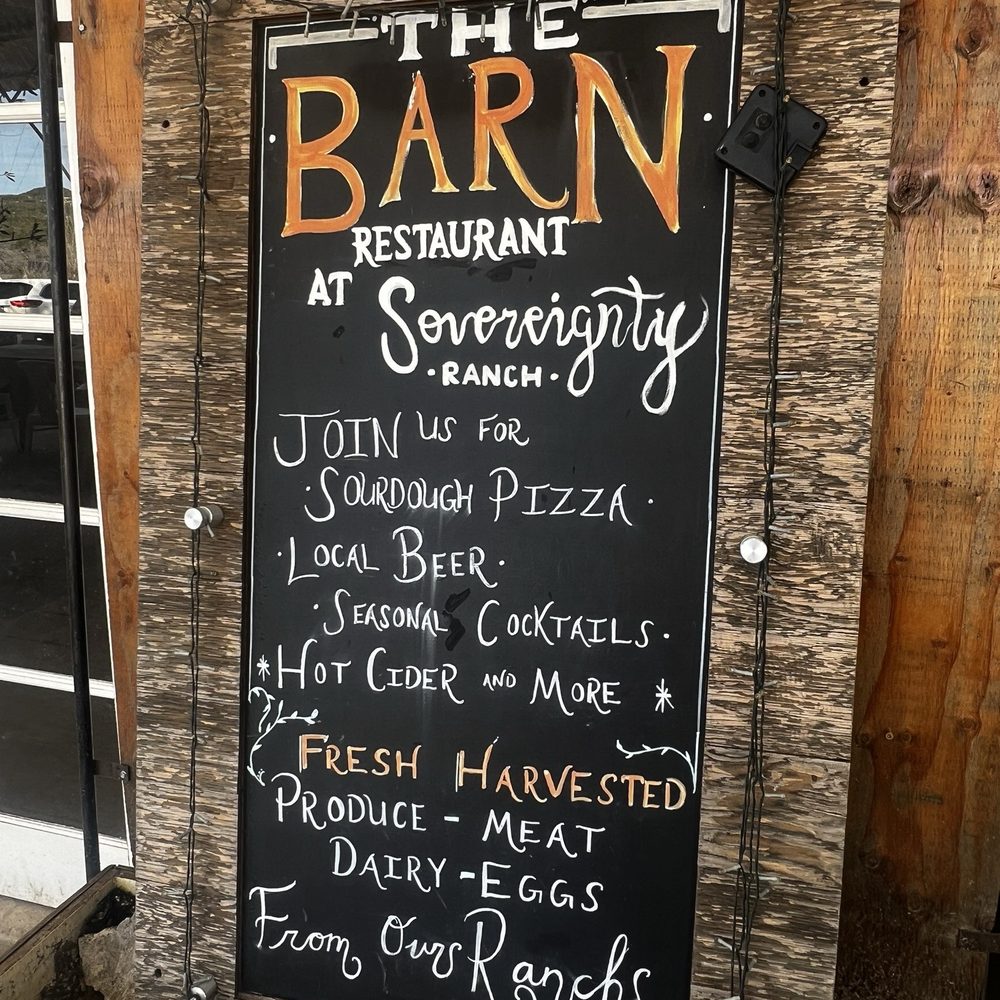 THE
BARN
RESTAURANT
AT Sovereignty
·RANCH·
JOIN US FOR
·SOURDOUGH PIZZA·
·LOCAL BEER·
·SEASONAL COCKTAILS·
*HOT CIDER AND MORE *
FRESH HARVESTED
PRODUCE - MEAT
DAIRY - EGGS
From Ours Ranchs